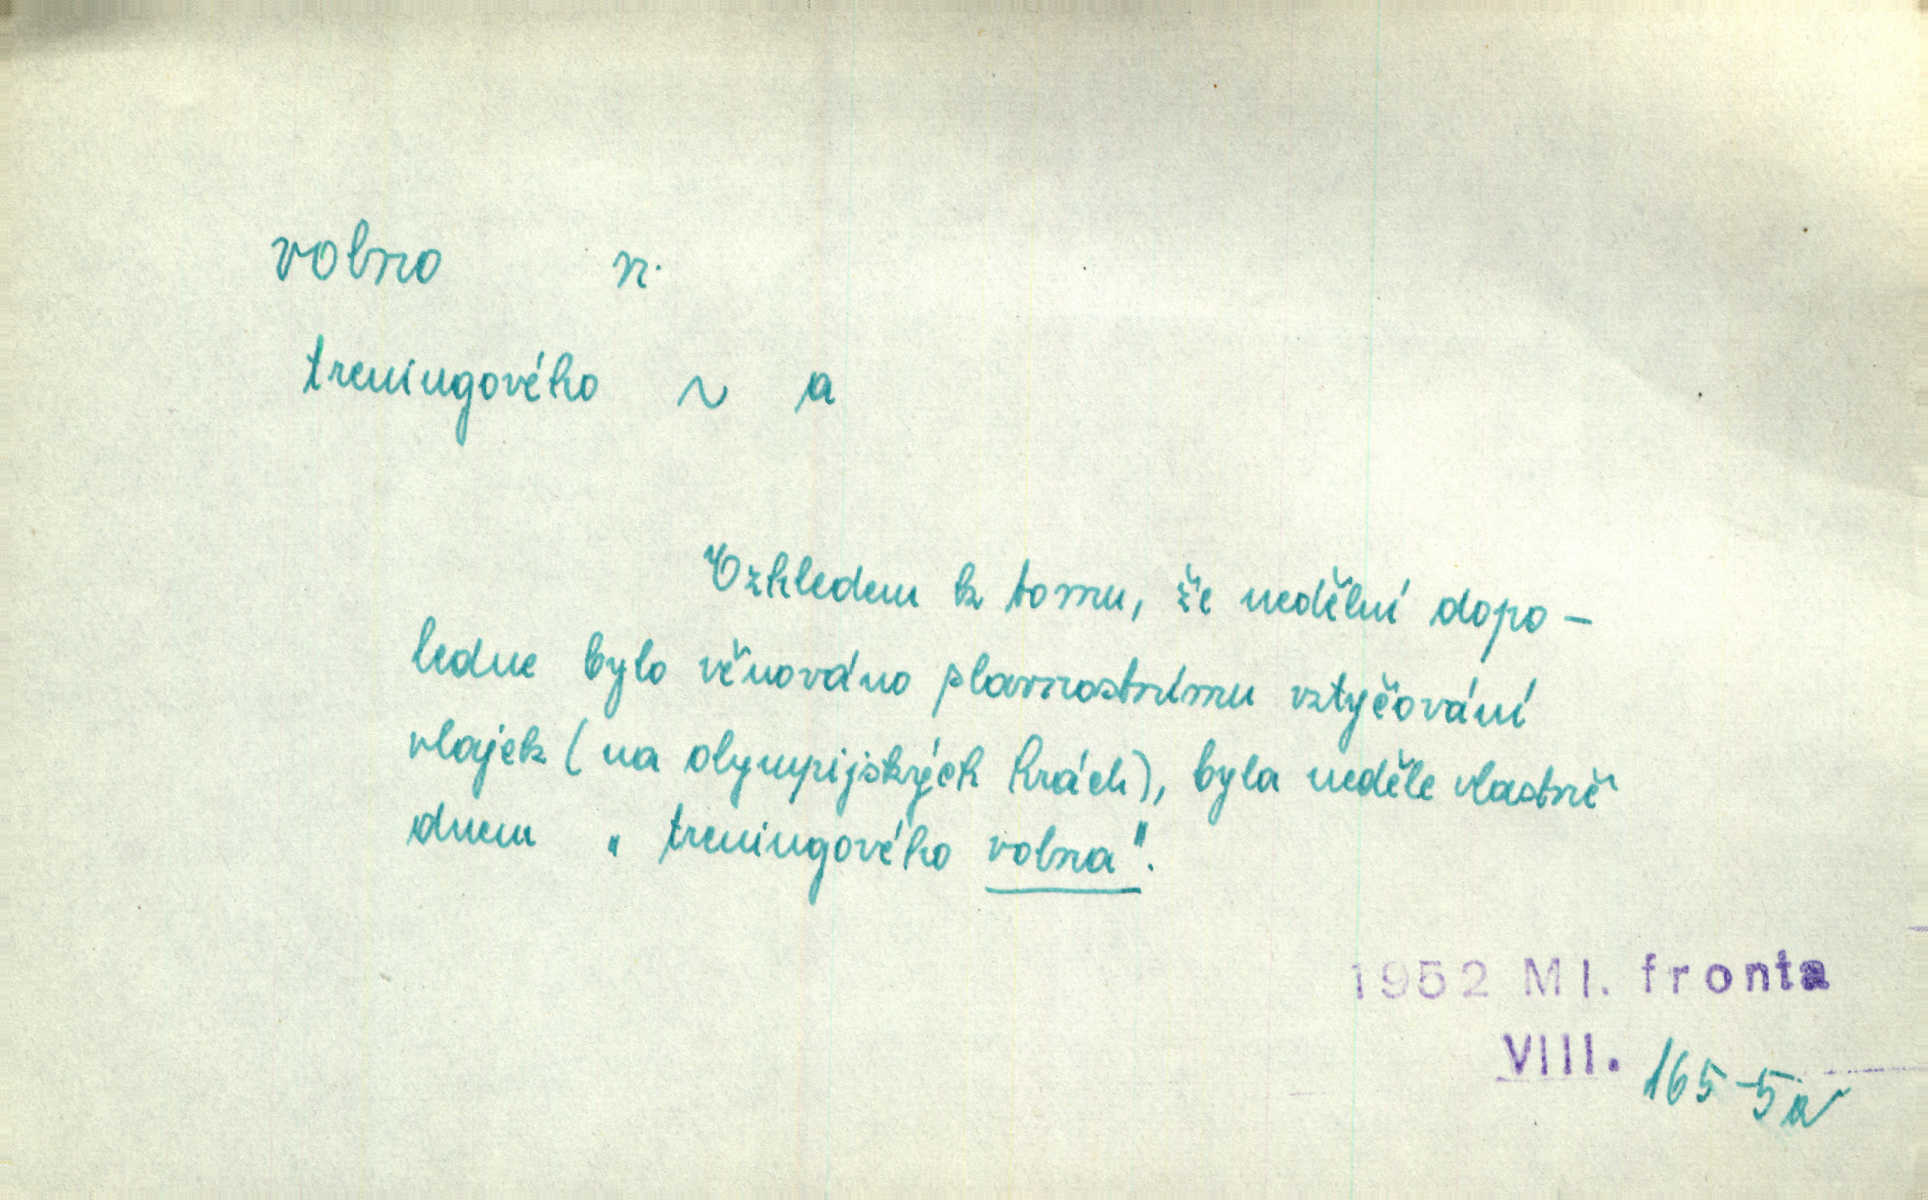 volno n.
treningového ~ a
Vzhledem k tomu, že nedělní dopo-
ledne bylo věnováno slavnostnímu vztyčování
vlajek (na olympijských hrách), byla neděle vlastně
dnem „treningového volna".
1952 Ml. fronta
VIII. 165-5a